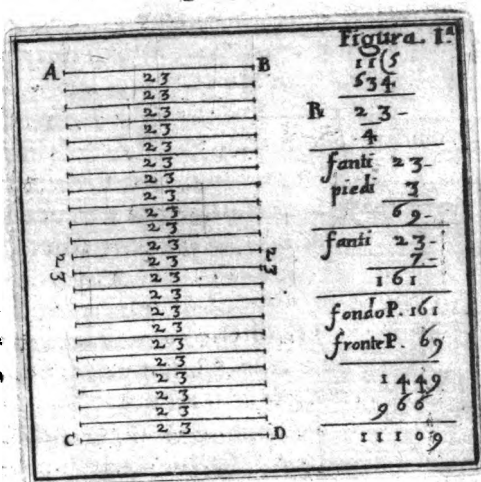 A B
23
23
23
23
23
23
23
23
23
23
23
23 23 23
23
23
23
23
23
23
23
23
23
23
C D
Figura. I.ª
11(5
534
R. 23-
4
fanti 23-
piedi 3
69-
fanti 23-
7-
161
fondo P. 161
fronte P. 69
1449
966
11109